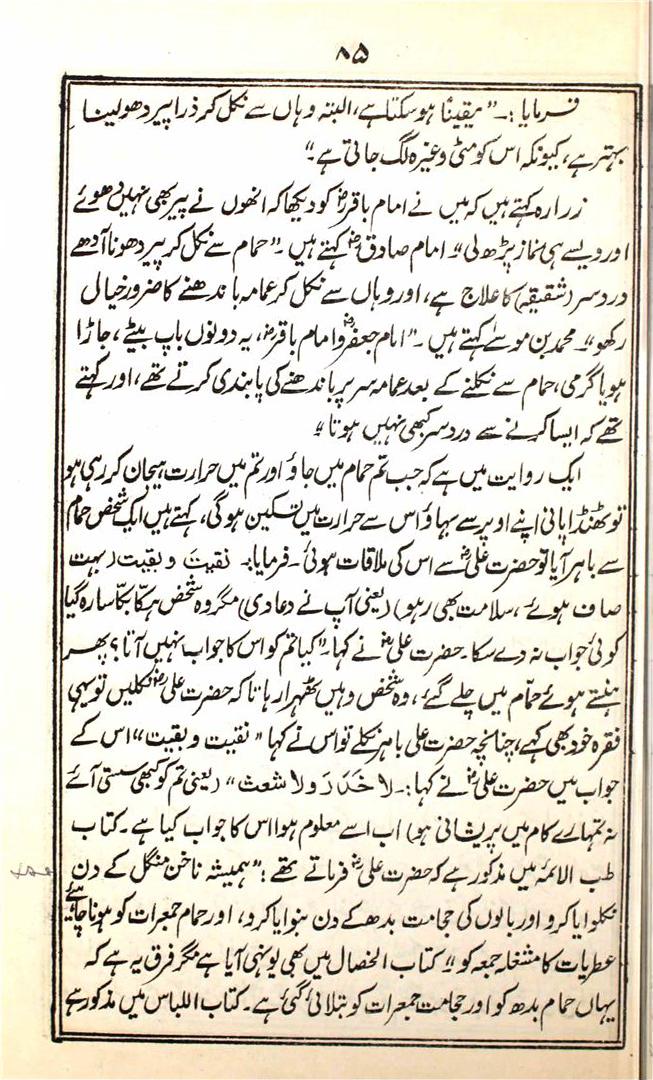 ۸۵
فرمایا:۔ ”یقیناً ہوسکتا ہے، البتہ وہاں سے نکل کر ذرا پیر دھولینا
بہتر ہے، کیونکہ اس کو مٹی وغیرہ لگ جاتی ہے“
زرارہ کہتے ہیں کہ میں نے امام باقرؓ کو دیکھا کہ انھوں نے پیر بھی نہیں دھوئے
اور ویسے ہی نماز پڑھ لی“ امام صادقؓ کہتے ہیں۔ ”حمام سے نکل کر پیر دھونا آدھے
دردسر (شقیقہ) کا علاج ہے، اور وہاں سے نکل کر عمامہ باندھنے کا ضرور خیال
رکھو“۔ محمد بن موسےٰ کہتے ہیں۔ ”امام جعفرؓ و امام باقرؓ، یہ دونوں باپ بیٹے، جاڑا
ہو یا گرمی، حمام سے نکلنے کے بعد عمامہ سر پر باندھنے کی پابندی کرتے تھے، اور کہتے
تھے کہ ایسا کرنے سے دردسر کبھی نہیں ہوتا“
ایک روایت میں ہے کہ جب تم حمام میں جاؤ اور تم میں حرارت ہیجان کر رہی ہو
تو ٹھنڈا پانی اپنے اوپر سے بہاؤ اس سے حرارت میں تسکین ہوگی، کہتے ہیں ایک شخص حمام
سے باہر آیا تو حضرت علیؓ سے اس کی ملاقات ہوئی۔ فرمایا:۔ نقیت و بقیت (بہت
صاف ہوئے، سلامت بھی رہو) (یعنی آپ نے دعا دی) مگر وہ شخص ہکا بکا سا رہ گیا
کوئی جواب نہ دے سکا۔ حضرت علیؓ نے کہا۔ ”کیا تم کو اس کا جواب نہیں آتا؟ پھر
ہنستے ہوئے حمّام میں چلے گئے، وہ شخص وہیں ٹھہرا رہا تاکہ حضرت علیؓ نکلیں تو یہی
فقرہ خود بھی کہے، چنانچہ حضرت علی باہر نکلے تو اس نے کہا ”نقیت و بقیت“ اس کے
جواب میں حضرت علیؓ نے کہا:۔ لا خَدَرَ ولا شعث“ (یعنی تم کو کبھی سستی آئے
نہ تمہارے کام میں پریشانی ہو) اب اسے معلوم ہوا اس کا جواب کیا ہے۔ کتاب
طب الائمہ میں مذکور ہے کہ حضرت علیؓ فرماتے تھے: ”ہمیشہ ناخن منگل کے دن
نکلوایا کرو اور بالوں کی حجامت بدھ کے دن بنوایا کرو، اور حمام جمعرات کو ہونا چاہیئے
عطریات کا مشغلہ جمعہ کو“ کتاب الخصال میں بھی یونہی آیا ہے مگر فرق یہ ہے کہ
یہاں حمام بدھ کو اور حجامت جمعرات کو بتلائی گئی ہے۔ کتاب اللباس میں مذکور ہے